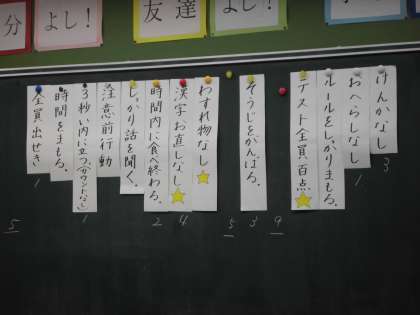 よし！
友達
よし！
分
けんかなし
3
おへらしなし
1
ルールをしっかりまもる。
テスト全員百点
9
そうじをがんばる。
3
5
わすれ物なし
漢字お直しなし
4
時間内に食べ終わる。
2
しっかり話を聞く。
注意前行動
3秒い内に立つ(カウントなし)
1
時間をまもる。
全員出せき
1
5